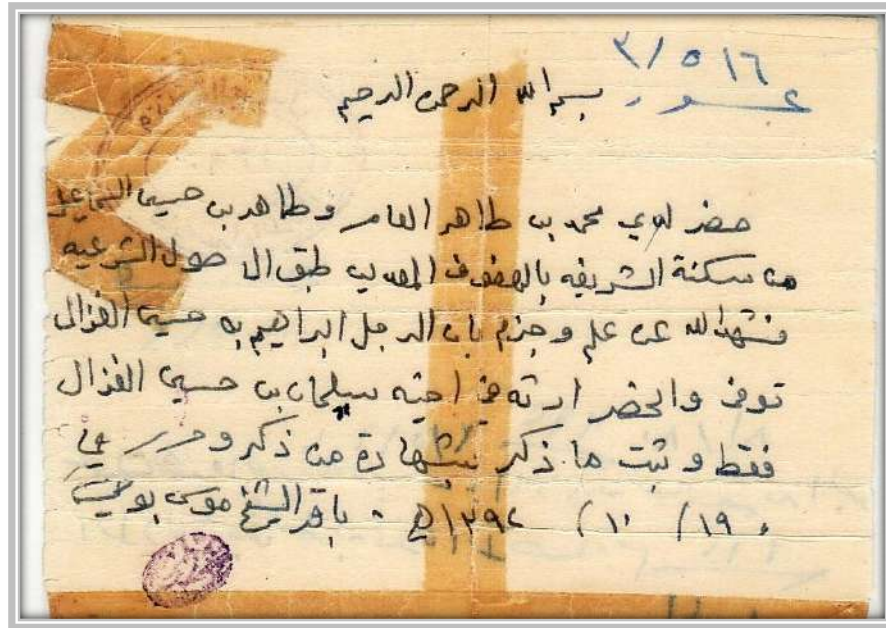 ٣/٥١٦
بسم الله الرحمن الرحيم
حضر لدي محمد بن طاهر العامر وطاهر بن حسين
من سكنة الشريفه بالهفوف المعدلين طبق الا صول الشرعيه
فشهدا لله عن علم وجزم بان الرجل ابراهيم بن حسين الغزال
توفى وانحصر ارثه في اخيه سلمان بن حسين الغزال
فقط وثبت ما ذكر بشهادة من ذكر وحرر في
١٩/ ١٠/ ١٣٩٤هـ - باقر الشيخ موسى بوخمسين